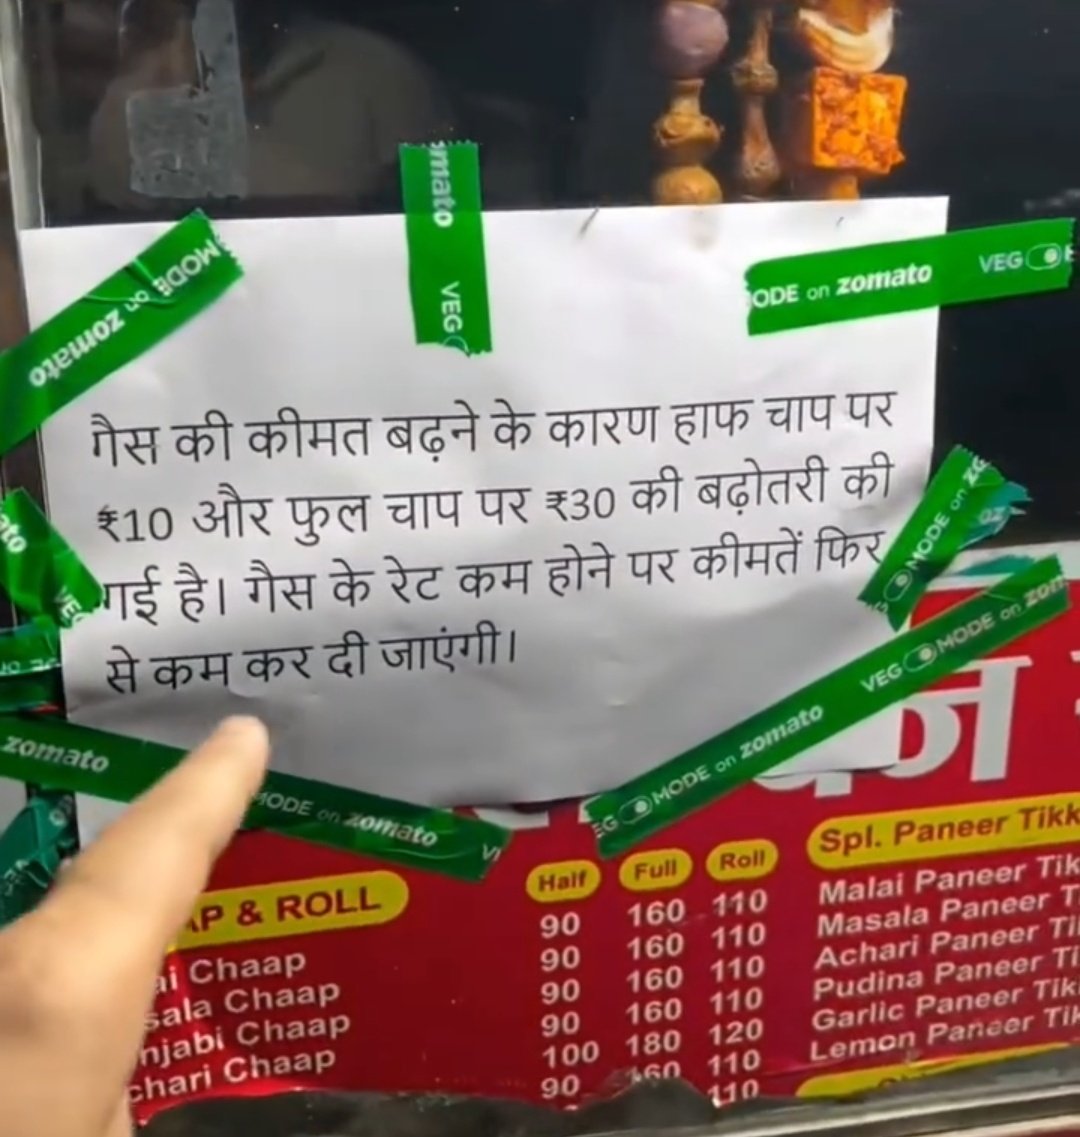 mato VEG
MODE on zomato
ODE on zomato VEG
गैस की कीमत बढ़ने के कारण हाफ चाप पर
₹10 और फुल चाप पर ₹30 की बढ़ोतरी की
गई है। गैस के रेट कम होने पर कीमतें फिर
से कम कर दी जाएंगी।
MODE on
ato VEG
VEG MODE on zomato
zomato MODE on zomato
Half Full Roll
& ROLL
90 160 110
Chaap 90 160 110
Chaap 90 160 110
Chaap 90 160 110
Chaap 100 180 120
90 160 110
110
Spl. Paneer Tikk
Malai Paneer Tik
Masala Paneer T
Achari Paneer Ti
Pudina Paneer Ti
Garlic Paneer Tik
Lemon Paneer Tik